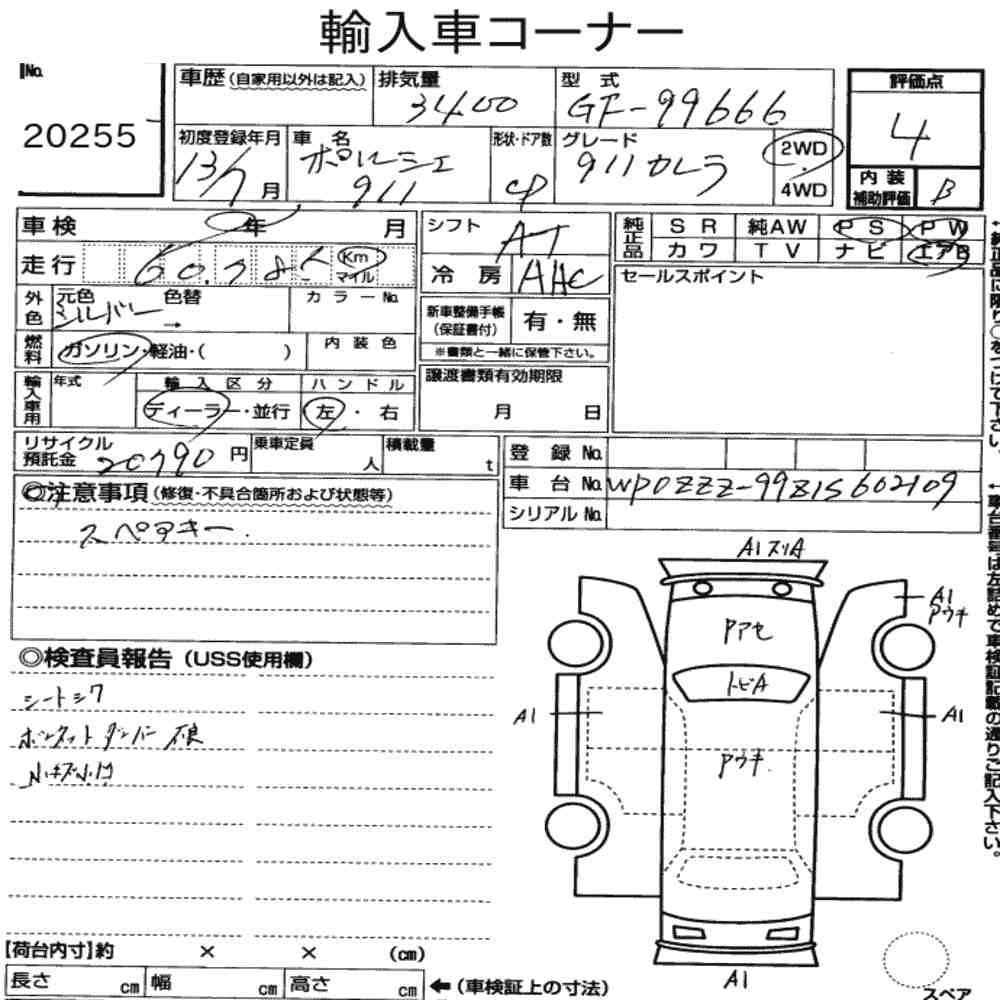 輸入車コーナー
No.
20255
車歴 (自家用以外は記入)
排気量
3400
型 式
GF-99666
初度登録年月
13/7 月
車 名
ポルシェ
911
形状・ドア数
CP
グレード
911カレラ
2WD
4WD
評価点
4
内 装
補助評価
B
車検 年 月
走行
60,785
Km
マイル
外色
元色 色替
シルバー →
カラーNo.
燃料
ガソリン・軽油・( )
内 装 色
輸入車用
年式
輸 入 区 分
ディーラー・並行
ハ ン ド ル
左 ・ 右
リサイクル
預託金 20790 円
乗車定員
人
積載量
t
シフト
AT
冷 房
AAC
新車整備手帳
(保証書付)
有・無
※書類と一緒に保管下さい。
譲渡書類有効期限
月 日
純正品
S R 純AW P S P W
カ ワ T V ナ ビ エアB
セールスポイント
←純正品に限り○をつけて下さい。
登 録 No.
車 台 No. WP0ZZZ-99Z1S602109
シリアル No.
←車台番号は左詰めで車検証記載の通りご記入下さい。
◎注意事項 (修復・不具合箇所および状態等)
スペアキー.
◎検査員報告 (USS使用欄)
シートシワ
ボンネットダンパー不良
小キズ小凹
A1 スリA
Pアセ
トビA
Pウキ
A1
Pウキ
A1
A1
A1
スペア
【荷台内寸】約 × × (cm)
長さ cm 幅 cm 高さ cm ←(車検証上の寸法)